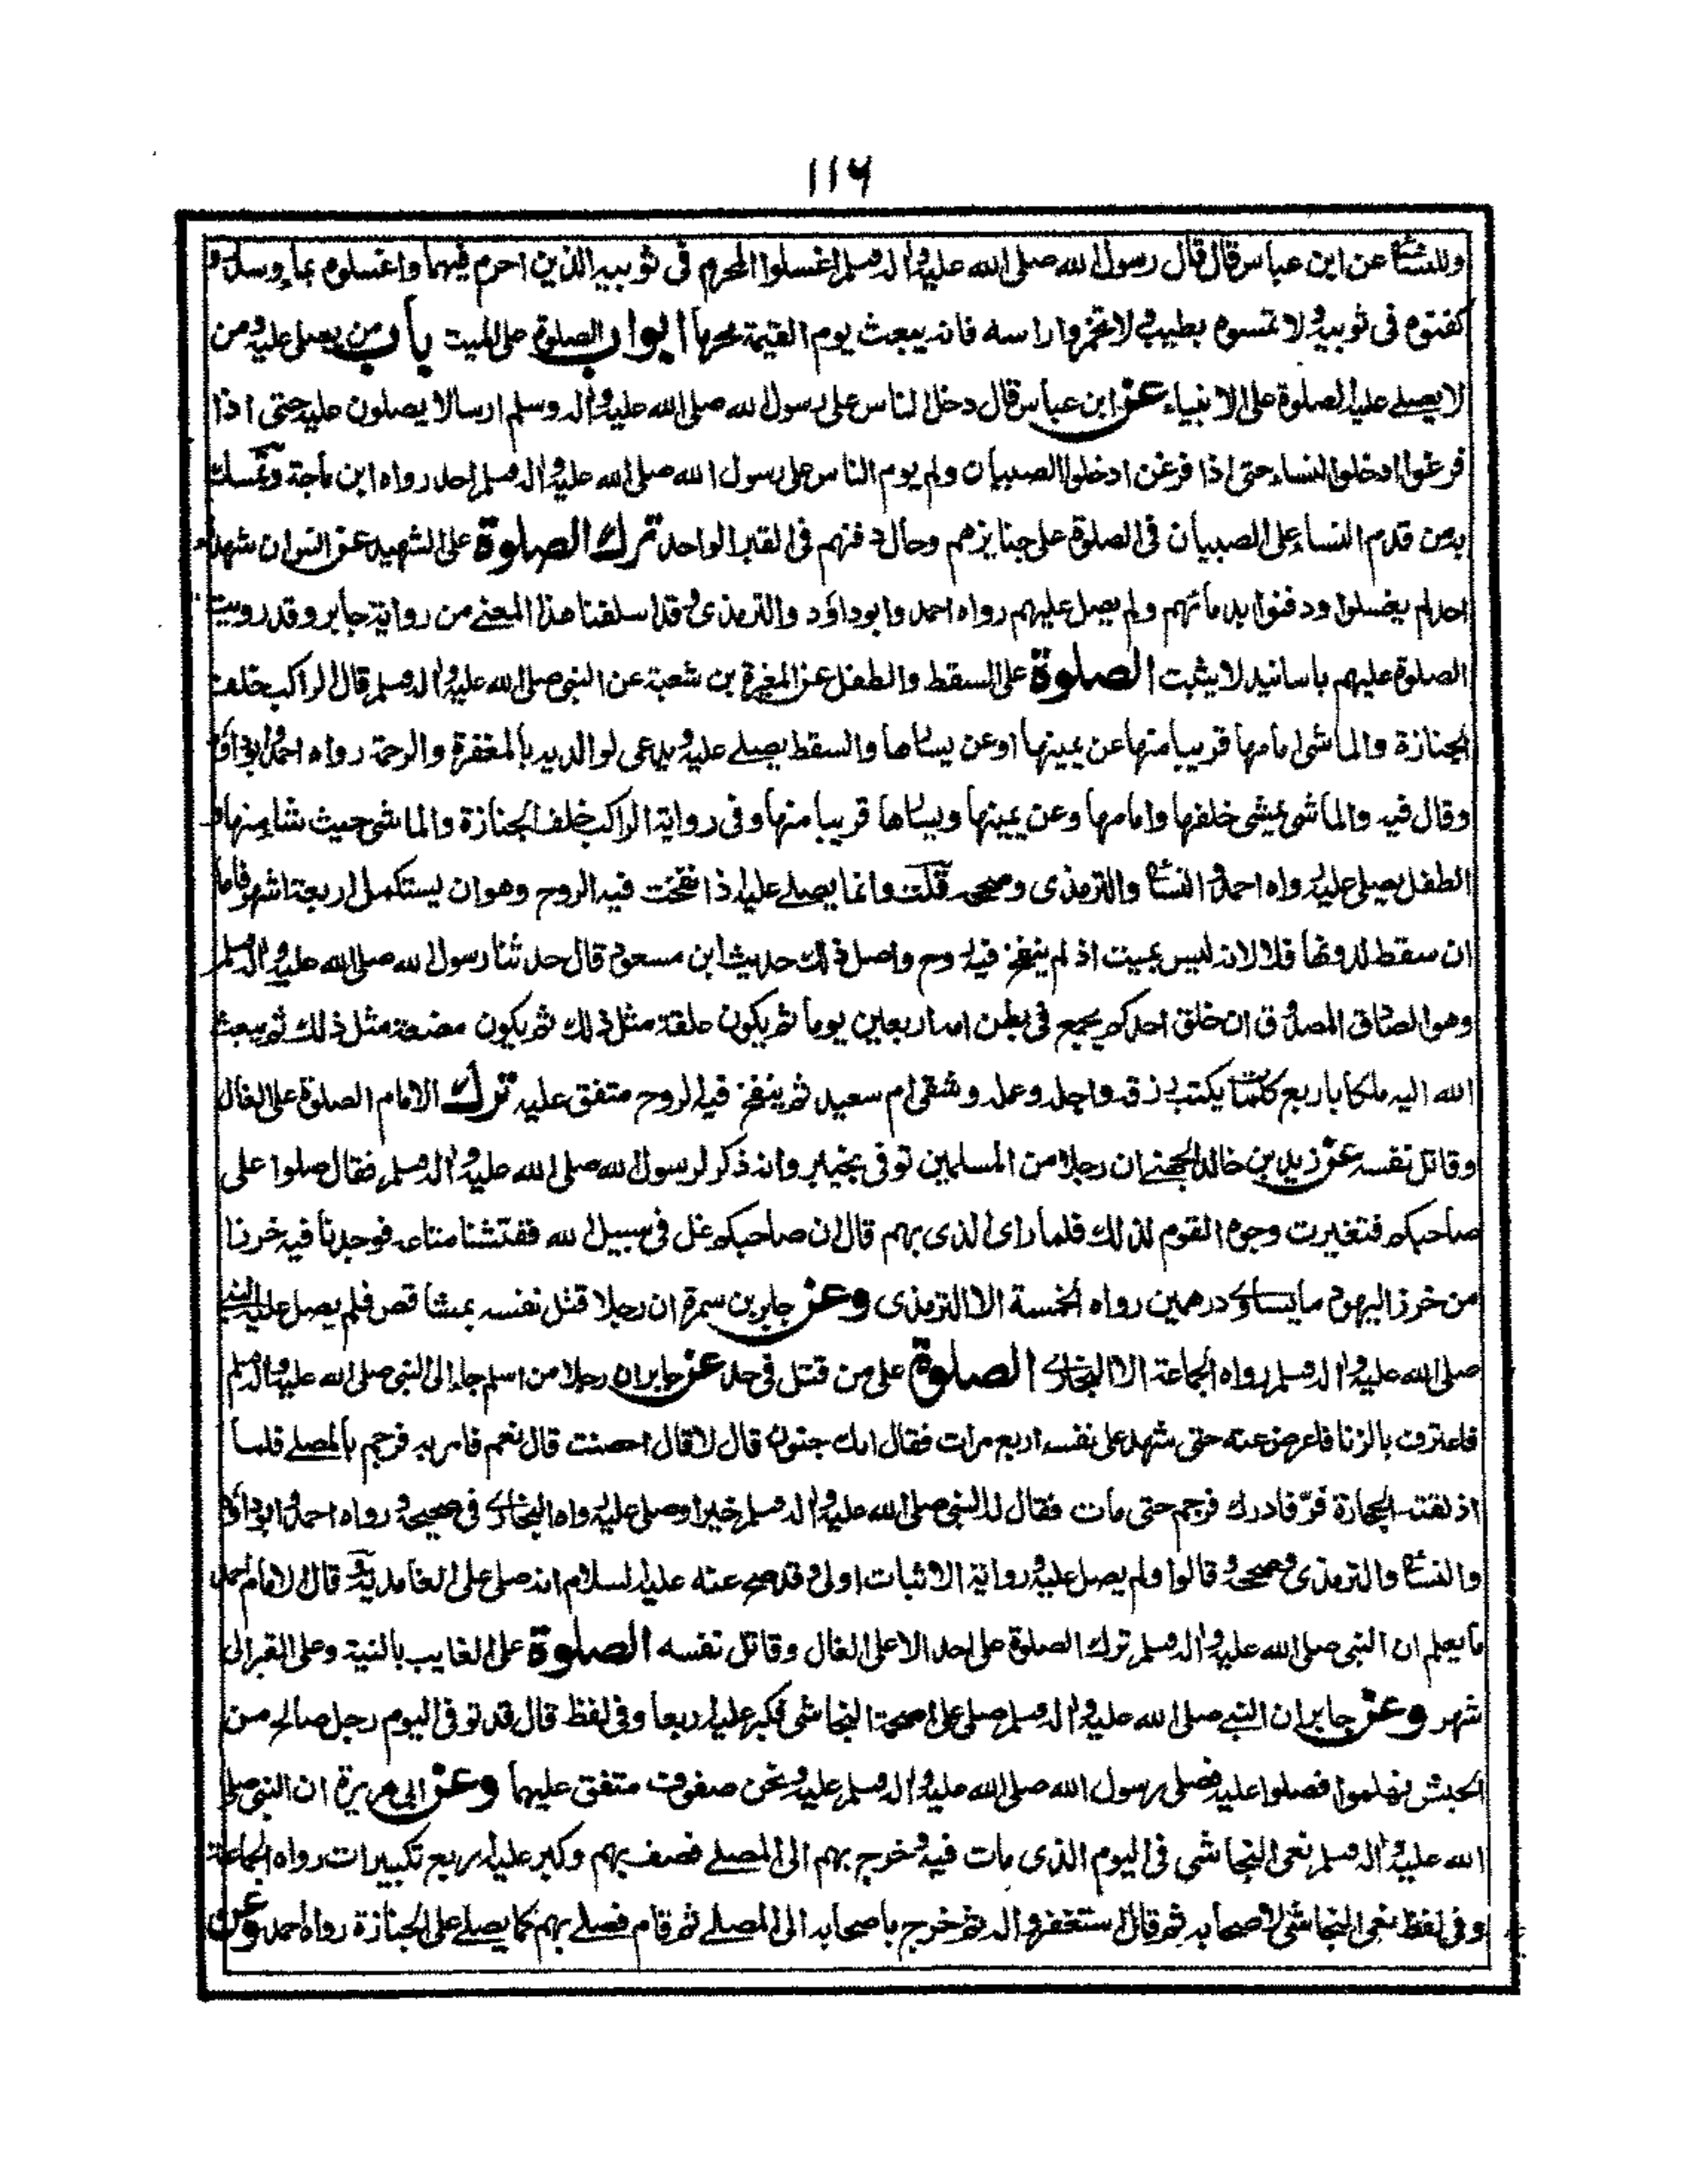 ١١٦
وللنسائى عن ابن عباس قال قال رسول الله صلى الله عليه واله وسلم اغسلوا المحرم فى ثوبيه الذين احرم فيهما واغسلوه بماء وسدر و
كفنوه فى ثوبيه ولا تمسوه بطيب ولا تخمروا راسه فانه يبعث يوم القيمة محرما ابواب الصلوة على الميت باب من يصلى عليه ومن
لا يصلے عليه الصلوة على الانبياء عن ابن عباس قال دخل الناس على رسول الله صلى الله عليه واله وسلم ارسالا يصلون عليه حتى اذا
فرغوا ادخلوا النساء حتى اذا فرغن ادخلوا الصبيان ولم يوم الناس على رسول الله صلى الله عليه واله وسلم احد رواه ابن ماجة وتمسك
به من قدم النساء على الصبيان فى الصلوة على جنايزهم وحال دفنهم فى القبر الواحد ترك الصلوة على الشهيد عن انس ان شهداء
احد لم يغسلوا ودفنوا بدمائهم ولم يصل عليهم رواه احمد وابوداؤد والترمذى وقد اسلفنا هذا المعنے من رواية جابر وقد رويت
الصلوة عليهم باسانيد لا يثبت الصلوة على السقط والطفل عن المغيرة بن شعبة عن النبى صلى الله عليه واله وسلم قال الراكب خلف
الجنازة والماشى امامها قريبا منها عن يمينها او عن يسارها والسقط يصلے عليه ويدعى لوالديه بالمغفرة والرحمة رواه احمد وابوداؤد
وقال فيه والماشى يمشى خلفها وامامها وعن يمينها ويسارها قريبا منها وفى رواية الراكب خلف الجنازة والماشى حيث شاء منها و
الطفل يصلى عليه رواه احمد والنسائى والترمذى وصححه قلت وانما يصلے عليه اذا نفخت فيه الروح وهو ان يستكمل اربعة اشهر فاما
ان سقط لدونها فلا لانه ليس بميت اذ لم ينفخ فيه روح واصل ذلك حديث ابن مسعود قال حدثنا رسول الله صلى الله عليه واله وسلم
وهو الصادق المصدوق ان خلق احدكم يجمع فى بطن امه اربعين يوما ثم يكون علقة مثل ذلك ثم يكون مضغة مثل ذلك ثم يبعث
الله اليه ملكا باربع كلمات يكتب رزقه واجله وعمله وشقى ام سعيد ثم ينفخ فيه الروح متفق عليه ترك الامام الصلوة على الغال
وقاتل نفسه عن زيد بن خالد الجهنے ان رجلا من المسلمين توفى بخيبر وانه ذكر لرسول الله صلى الله عليه واله وسلم فقال صلوا على
صاحبكم فتغيرت وجوه القوم لذلك فلما راى الذى بهم قال ان صاحبكم غل فى سبيل الله ففتشنا متاعه فوجدنا فيه خرزا
من خرز اليهود ما يساوى درهمين رواه الخمسة الا الترمذى وعن جابر بن سمرة ان رجلا قتل نفسه بمشاقص فلم يصل عليه النبے
صلى الله عليه واله وسلم رواه الجماعة الا البخارى الصلوة على من قتل فى حد عن جابر ان رجلا من اسلم جاء الى النبى صلى الله عليه واله وسلم
فاعترف بالزنا فاعرض عنه حتى شهد على نفسه اربع مرات فقال ابك جنون قال لا قال احصنت قال نعم فامر به فرجم بالمصلے فلما
اذلقته الحجارة فرّ فادرك فرجم حتى مات فقال له النبى صلى الله عليه واله وسلم خيرا وصلى عليه رواه البخارى فى صحيحه ورواه احمد وابوداؤد
والنسائى والترمذى وصححه وقالوا ولم يصل عليه ورواية الاثبات اولى وقد صح عنه عليه السلام انه صلى على الغامدية وقال الامام احمد
ما يعلم ان النبى صلى الله عليه واله وسلم ترك الصلوة على احد الا على الغال وقاتل نفسه الصلوة على الغايب بالنية وعلى القبر الى
شهر وعن جابر ان النبے صلى الله عليه واله وسلم صلى على اصحمة النجاشى فكبر عليه اربعا وفى لفظ قال قد توفى اليوم رجل صالح من
الحبش فهلموا فصلوا عليه فصلى رسول الله صلى الله عليه واله وسلم عليه ونحن صفوف متفق عليهما وعن ابى هريرة ان النبى صلى
الله عليه واله وسلم نعى النجاشى فى اليوم الذى مات فيه وخرج بهم الى المصلے فصف بهم وكبر عليه اربع تكبيرات رواه الجماعة
وفى لفظ نعى النجاشى لاصحابه ثم قال استغفروا له ثم خرج باصحابه الى المصلے ثم قام فصلے بهم كما يصلے على الجنازة رواه احمد وعن